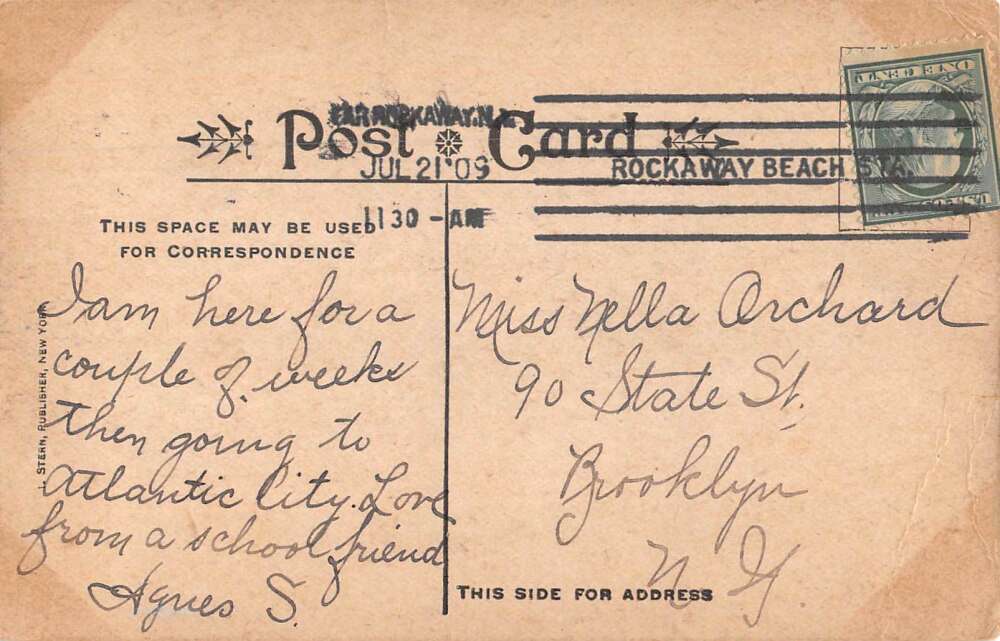 FAR ROCKAWAY. N.Y.
Post Card
JUL 21 '09
ROCKAWAY BEACH STA.
1130 - AM
ONE CENT
THIS SPACE MAY BE USED
FOR CORRESPONDENCE
I am here for a
couple of weeks
then going to
Atlantic City. Love
from a school friend
Agnes S.
Miss Nella Orchard
90 State St.
Brooklyn
N Y
THIS SIDE FOR ADDRESS
I. STERN, PUBLISHER, NEW YORK